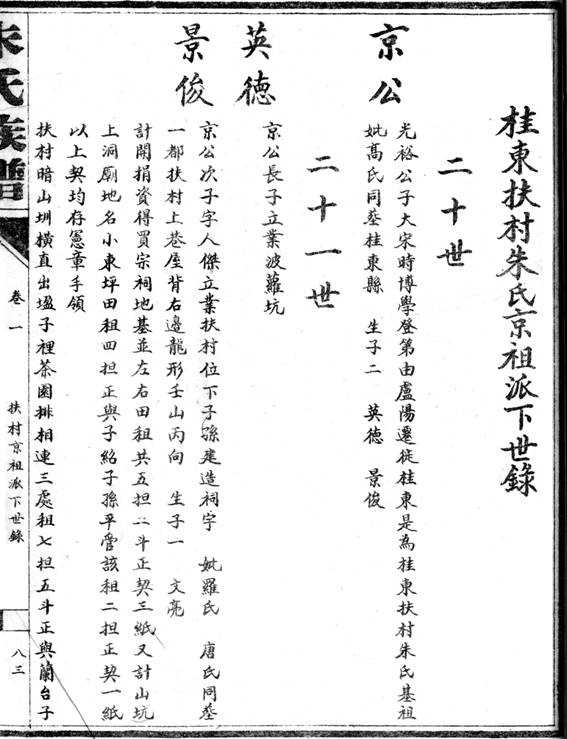 桂東扶村朱氏京祖派下世錄
二十世
京公
光裕公子大宋時博學登第由盧陽遷徙桂東是為桂東扶村朱氏基祖
妣髙氏同塟桂東縣 生子二 英德 景俊
二十一世
英德
京公長子立業波蘿坑
景俊
京公次子字人傑立業扶村位下子孫建造祠宇 妣羅氏 唐氏同塟
一都扶村上巷屋背右邊龍形壬山丙向 生子一 文亮
計開捐資得買宗祠地基並左右田租共五担二斗正契三紙又計山坑
上洞廟地名小東坪田租四担正與子紹子孫平管該租二担正契一紙
以上契均存憲章手領
扶村暗山圳橫直出塩子裡茶園排相連三處租七担五斗正與蘭台子
朱氏族譜
卷一
扶村京祖派下世錄
八三